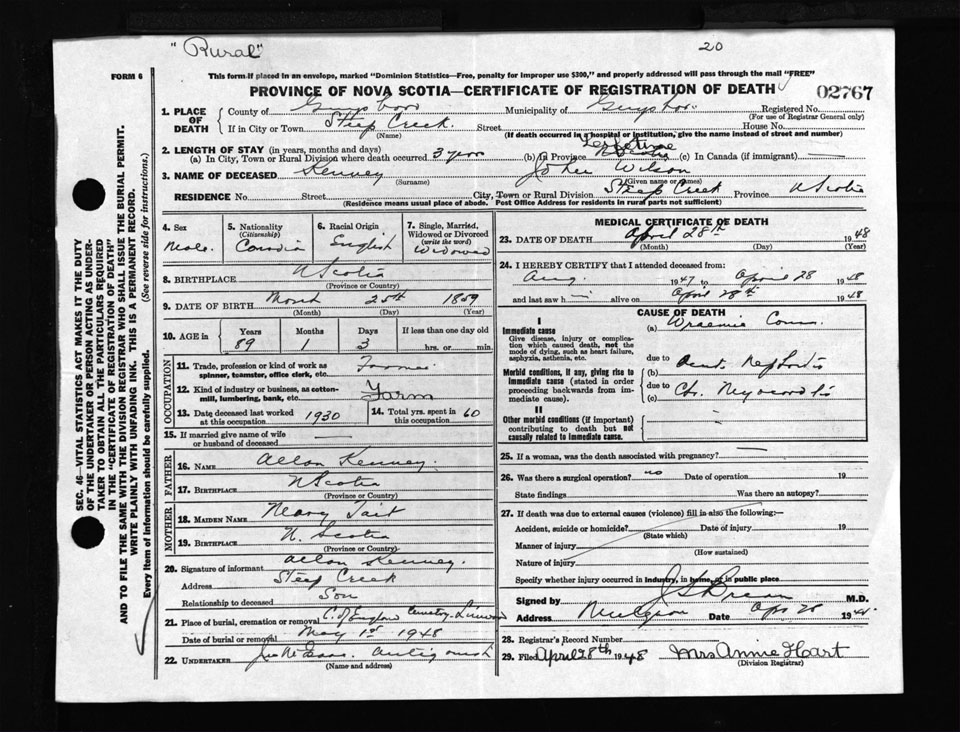 "Rural" 20
FORM 6
This form if placed in an envelope, marked "Dominion Statistics—Free, penalty for improper use $300," and properly addressed will pass through the mail "FREE"
PROVINCE OF NOVA SCOTIA—CERTIFICATE OF REGISTRATION OF DEATH 02767
SEC. 46—VITAL STATISTICS ACT MAKES IT THE DUTY
OF THE UNDERTAKER OR PERSON ACTING AS UNDER-
TAKER TO OBTAIN ALL THE PARTICULARS REQUIRED
IN THE "CERTIFICATE OF REGISTRATION OF DEATH"
AND TO FILE THE SAME WITH THE DIVISION REGISTRAR WHO SHALL ISSUE THE BURIAL PERMIT.
WRITE PLAINLY WITH UNFADING INK. THIS IS A PERMANENT RECORD.
Every item of information should be carefully supplied. (See reverse side for instructions.)
1. PLACE OF DEATH
County of Guysboro Municipality of Guysboro Registered No.
(For use of Registrar General only)
If in City or Town Steep Creek Street House No.
(Name) (If death occurred in a hospital or institution, give the name instead of street and number)
2. LENGTH OF STAY (in years, months and days)
(a) In City, Town or Rural Division where death occurred 3 year (b) In Province Lifetime N Scotia (c) In Canada (if immigrant) —
3. NAME OF DECEASED Kenney Wilson
(Surname) (Given name or names)
RESIDENCE No. Street City, Town or Rural Division Steep Creek Province N Scotia
(Residence means usual place of abode. Post Office Address for residents in rural parts not sufficient)
4. Sex Male
5. Nationality (Citizenship)
6. Racial Origin English
7. Single, Married, Widowed or Divorced (write the word) Widowed
8. BIRTHPLACE N Scotia
(Province or Country)
9. DATE OF BIRTH March 25th 1859
(Month) (Day) (Year)
10. AGE in Years 89 Months 1 Days 3 If less than one day old hrs. or min.
OCCUPATION
11. Trade, profession or kind of work as spinner, teamster, office clerk, etc. Farmer
12. Kind of industry or business, as cotton-mill, lumbering, bank, etc. Farm
13. Date deceased last worked at this occupation 1930
14. Total yrs. spent in this occupation 60
15. If married give name of wife or husband of deceased —
FATHER
16. NAME Allan Kenney.
17. BIRTHPLACE N Scotia
(Province or Country)
MOTHER
18. MAIDEN NAME Mary Tait
19. BIRTHPLACE N. Scotia
(Province or Country)
20. Signature of informant Allan Kenney.
Address Steep Creek
Relationship to deceased Son
21. Place of burial, cremation or removal C. of England Cemetry Linwood
Date of burial or removal May 1st 1948
22. UNDERTAKER Antigonish
(Name and address)
MEDICAL CERTIFICATE OF DEATH
23. DATE OF DEATH April 28th 1948
(Month) (Day) (Year)
24. I HEREBY CERTIFY that I attended deceased from:
Aug. 1947 to April 28 1948
and last saw h im alive on April 28th 1948
CAUSE OF DEATH
I
Immediate cause (a) Uraemic Coma.
Give disease, injury or complication which caused death, not the mode of dying, such as heart failure, asphyxia, asthenia, etc.
due to
Morbid conditions, if any, giving rise to immediate cause (stated in order proceeding backwards from immediate cause). (b) Acut. Nephritis
due to
(c) Chr. Myocarditis
II
Other morbid conditions (if important) contributing to death but not causally related to immediate cause.
25. If a woman, was the death associated with pregnancy? —
26. Was there a surgical operation? no Date of operation 19
State findings Was there an autopsy?
27. If death was due to external causes (violence) fill in also the following:—
Accident, suicide or homicide? Date of injury 19
(State which)
Manner of injury
(How sustained)
Nature of injury
Specify whether injury occurred in industry, in home, or in public place
Signed by M.D.
Address Mulgrave Date Apr 28 194
28. Registrar's Record Number
29. Filed April 28th 1948 Mrs Annie Hart
(Division Registrar)